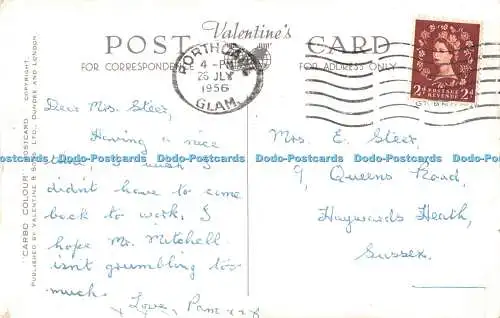 POST Valentine's CARD
FOR CORRESPONDENCE
FOR ADDRESS ONLY
PORTHCAWL
4 - PM
26 JLY
1956
GLAM.
2d POSTAGE REVENUE 2d
Dear Mrs. Steer,
Having a nice
time, I wish I
didn't have to come
back to work. I
hope Mr. Mitchell
isn't grumbling too
much.
Love, Pam x x x
Mrs. E. Steer,
9, Queens Road,
Haywards Heath,
Sussex.
"CARBO COLOUR" POSTCARD COPYRIGHT.
PUBLISHED BY VALENTINE & SONS, LTD., DUNDEE AND LONDON
Dodo-Postcards Dodo-Postcards Dodo-Postcards Dodo-Postcards Dodo-Postcards Dodo-Postcards